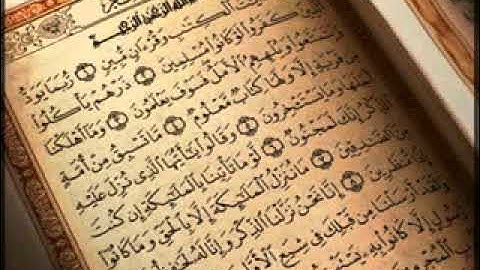 الله الرحمن الرحيم
ءايت الكتب وقرءان مبين ① ربما يود
الذين كفروا لو كانوا مسلمين ② ذرهم يأكلوا
ويتمتعوا ويلههم الأمل فسوف يعلمون ③ وما أهلكنا
من قرية إلا ولها كتاب معلوم ④ ما تسبق من أمة
أجلها وما يستءخرون ⑤ وقالوا يأيها الذي نزل عليه
الذكر إنك لمجنون ⑥ لو ما تأتينا بالملئكة إن كنت
من الصدقين ⑦ ما ننزل الملئكة إلا بالحق وما كانوا
إذا منظرين ⑧ إنا نحن نزلنا الذكر وإنا له
ولقد أرسلنا من قبلك في شيع الأولين
رسول إلا كانوا به يستهزءون